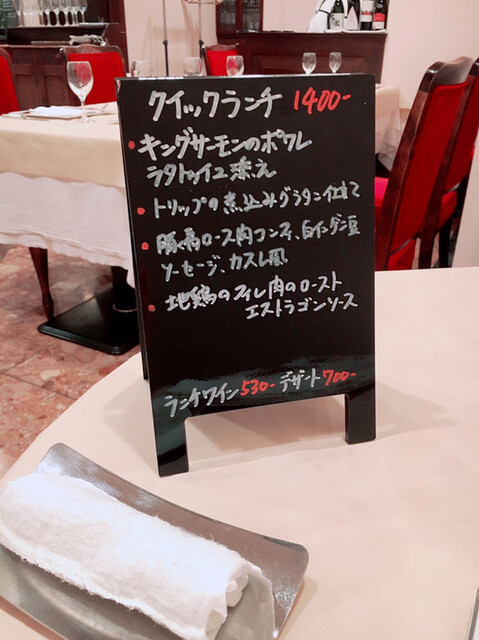 クイックランチ 1400-
・キングサーモンのポワレ
ラタトゥイユ添え
・トリップの煮込みグラタン仕立て
・豚肩ロース肉コンフィ、白インゲン豆
ソーセージ、カスレ風
・地鶏のフィレ肉のロースト
エストラゴンソース
ランチワイン530- デザート700-